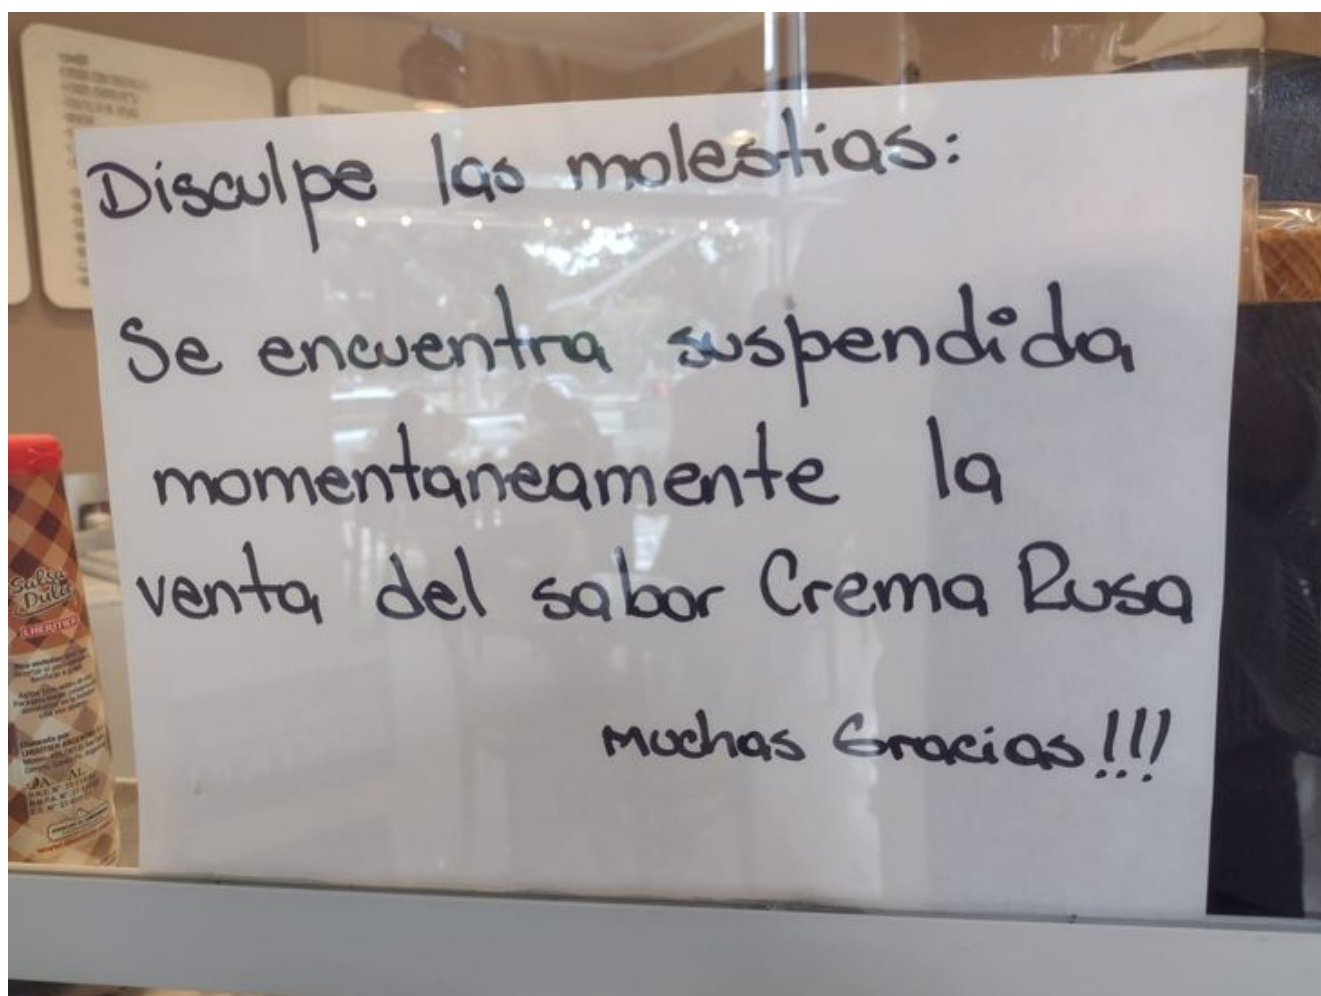 Disculpe las molestias:
Se encuentra suspendida
momentaneamente la
venta del sabor Crema Rusa
Muchas Gracias!!!
Salsa
Dulce
LHERITIER